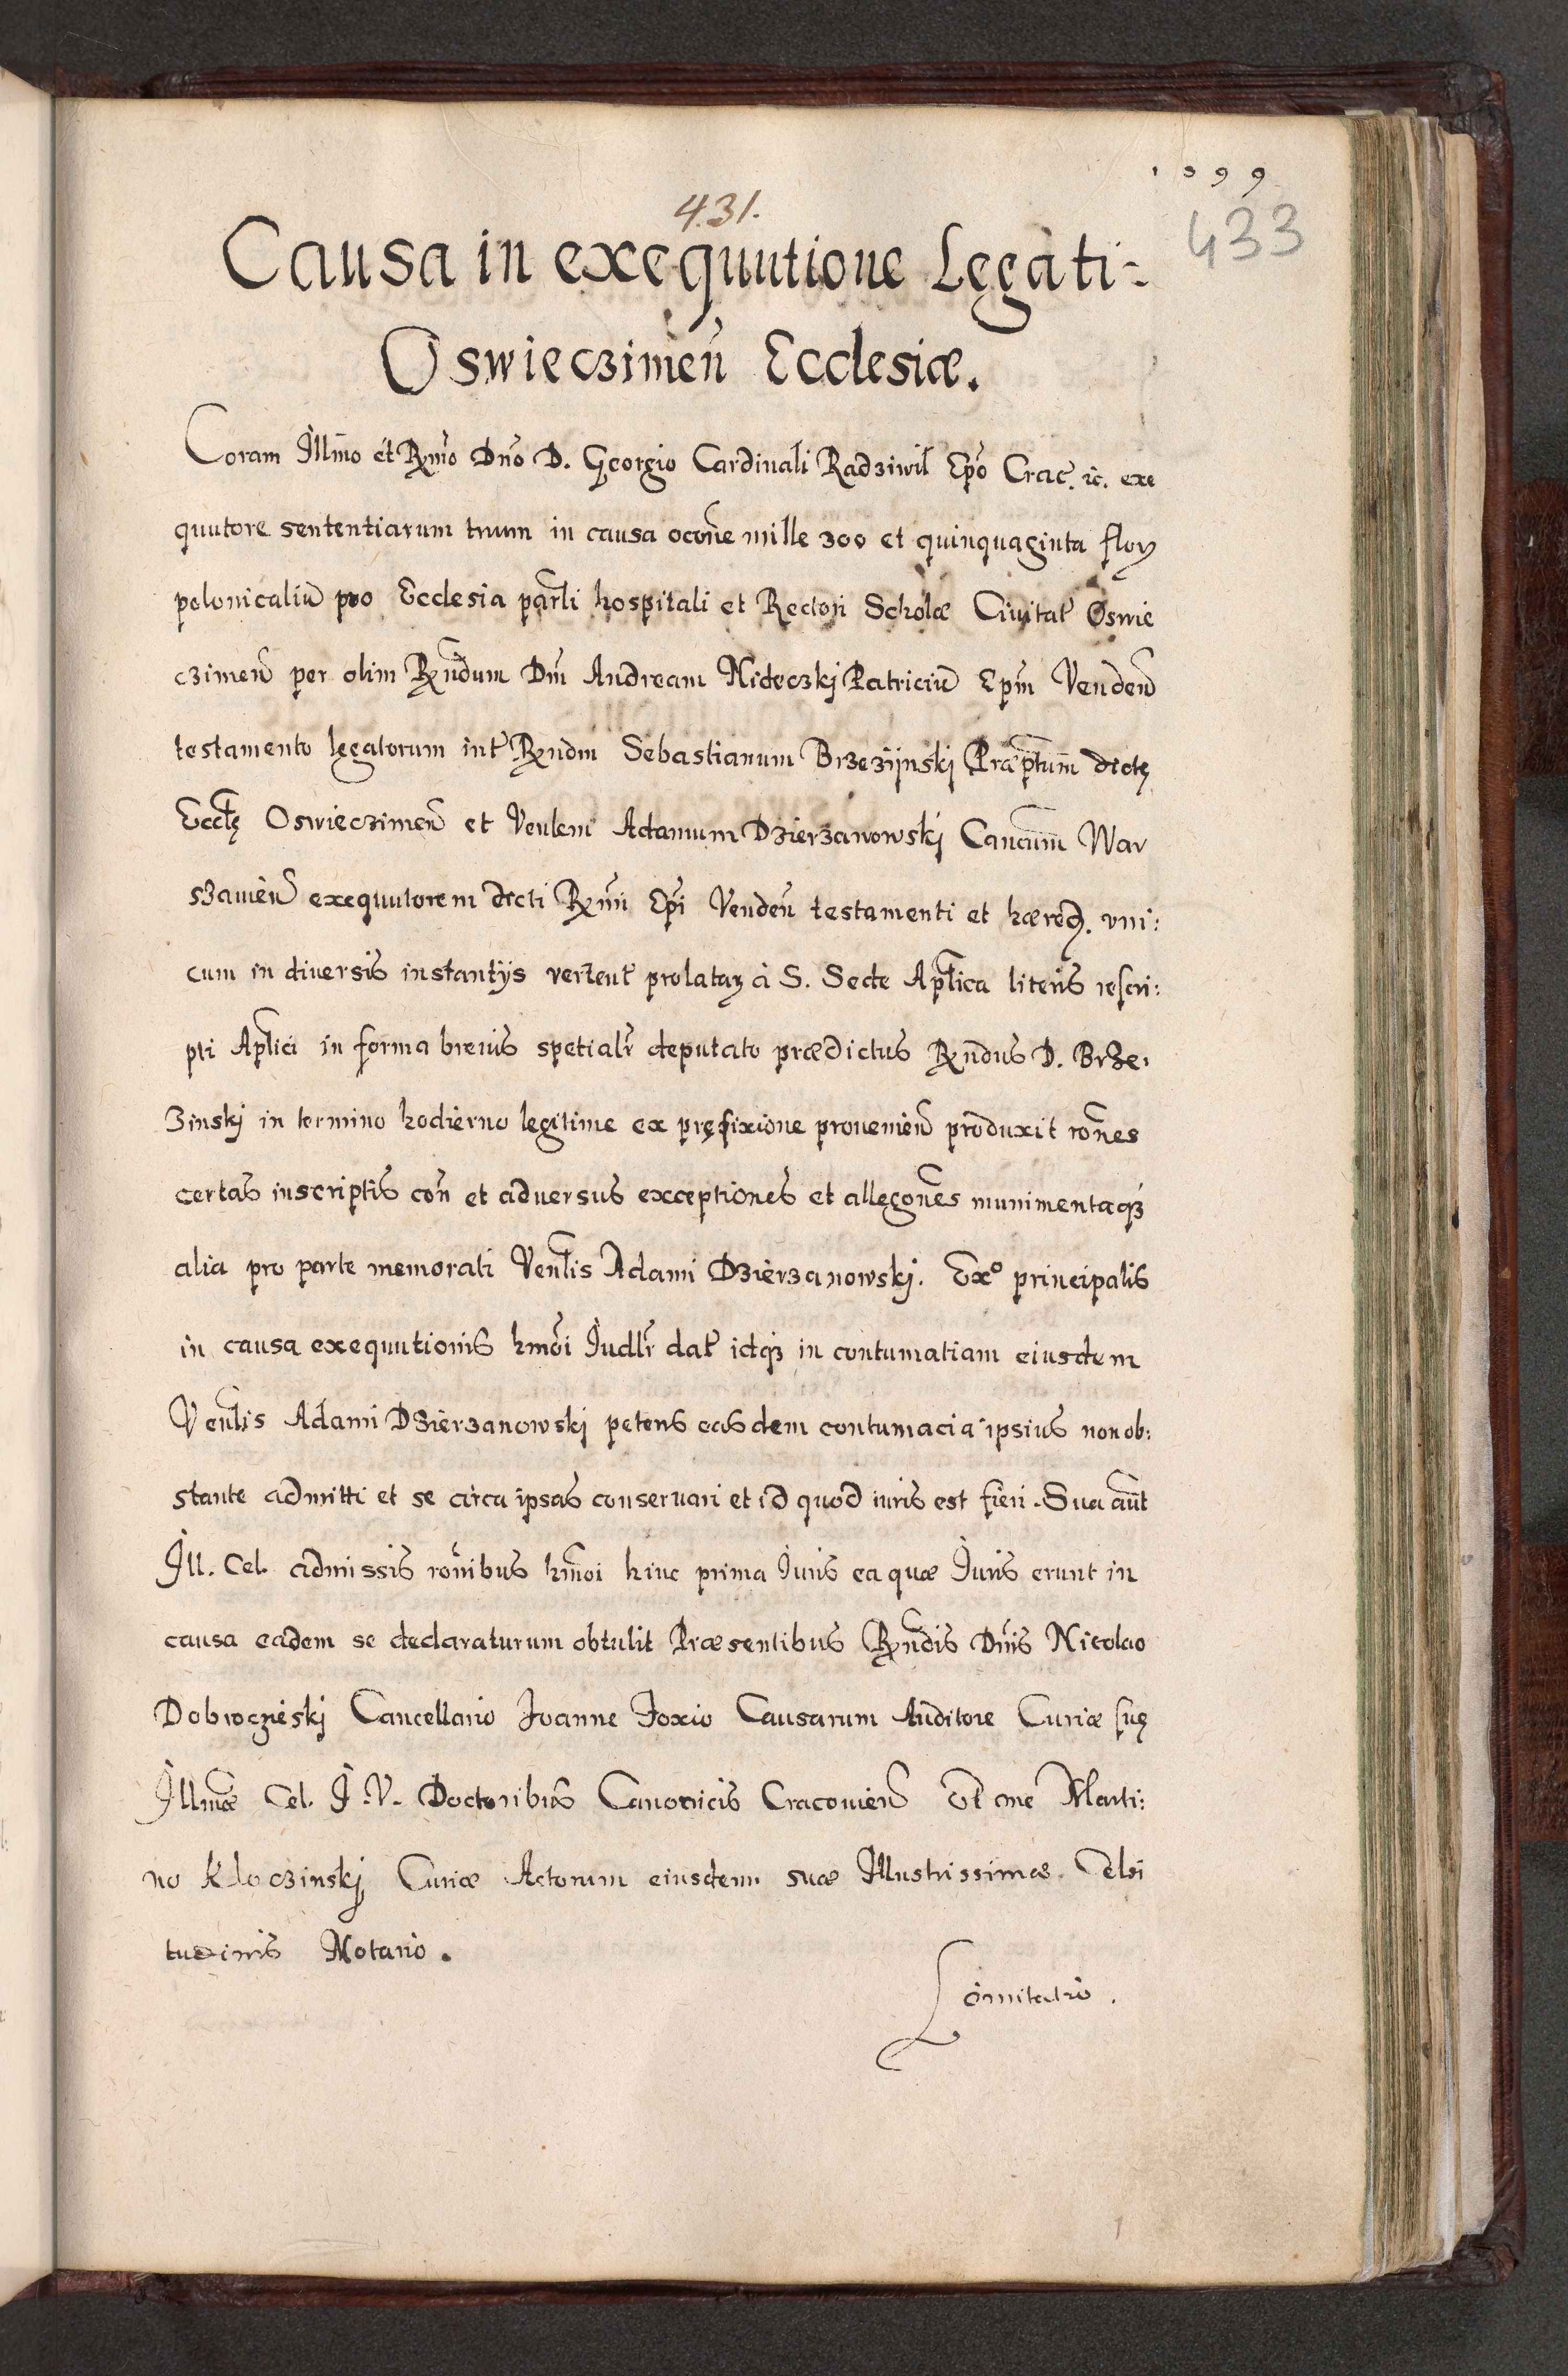 1599
431.
433
Causa in exequutione Legati
Oswieczimeñ Ecclesiæ.
Coram Illmo et Rmo Dno D. Georgio Cardinali Radziwil Epo Crac. ic. exe
quutore sententiarum trium in causa occone mille 300 et quinquaginta flor
polonicaliũ pro Ecclesia parli hospitali et Rectori Scholæ Ciuitat Oswie
czimeñ per olim Rndum Dm Andream Nideczkj Patriciũ Epm Vendeñ
testamento legatorum int Rndm Sebastianum Brzezijnskj Præptum dictę
Ecclę Oswieczimeñ et Venlem Adamum Dzierzanowskj Cancum War
szauieñ exequutorem dicti Rmi Epi Vendeñ testamenti et hæred. vni:
cum in diuersis instantijs vertent prolatar à S. Sede Aplica literis rescri:
pti Aplici in forma breuis spetialr deputato prædictus Rndus D. Brze,
zinskj in termino hodierno legitime ex pręfixione proueнieñ produxit rones
certas inscriptis con et aduersus exceptiones et allegones munimentaqȝ
alia pro parte memorati Venlis Adami Dzierzanowskj. Exº principalis
in causa exequutionis hmoi Judlr dat idqȝ in contumatiam eiusdem
Venlis Adami Dzierzanowskj petens easdem contumacia ipsius non ob:
stante admitti et se circa ipsas conseruari et id quod iuris est fieri. Sua aut
Ill. Cel. admissis ronibus hmoi hinc prima Iuris ea quæ Iuris erunt in
causa eadem se declaraturum obtulit Præsentibus Rndis Dnis Nicolao
Dobroczieskj Cancellario Joanne Foxio Causarum Auditore Curiæ suę
Illmæ Cel. I. V. Doctoribus Canonicis Cracouieñ Et me Marti:
no Kloczinskj Curiæ Actorum eiusdem suæ Illustrissimæ Celsi
tudinis Notario.